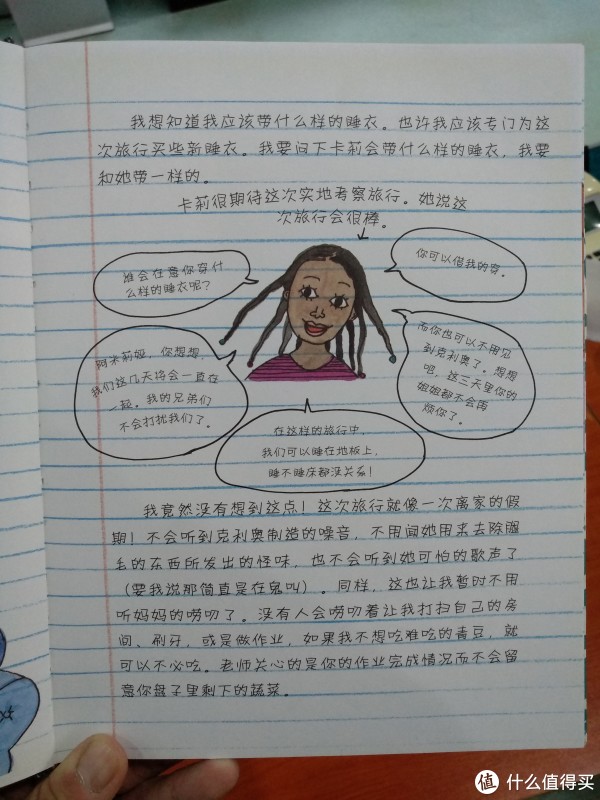 我想知道我应该带什么样的睡衣。也许我应该专门为这
次旅行买些新睡衣。我要问下卡莉会带什么样的睡衣，我要
和她带一样的。
卡莉很期待这次实地考察旅行。她说这
次旅行会很棒。
谁会在意你穿什
么样的睡衣呢？
你可以借我的穿。
阿卡莉娅，你想想，
我们这几天将会一直在
一起。我的兄弟们
不会打扰我们了。
而你也可以不用见
到克利奥了。想想
吧，这三天里你的
姐姐都不会再
烦你了。
在这样的旅行中，
我们可以睡在地板上，
睡不睡床都没关系！
我竟然没有想到这点！这次旅行就像一次离家的假
期！不会听到克利奥制造的噪音，不用闻她用来去除腿
毛的东西所发出的怪味，也不会听到她可怕的歌声了
（要我说那简直是在鬼叫）。同样，这也让我暂时不用
听妈妈的唠叨了。没有人会唠叨着让我打扫自己的房
间、刷牙，或是做作业，如果我不想吃难吃的青豆，就
可以不必吃。老师关心的是你的作业完成情况而不会留
意你盘子里剩下的蔬菜。
值 什么值得买